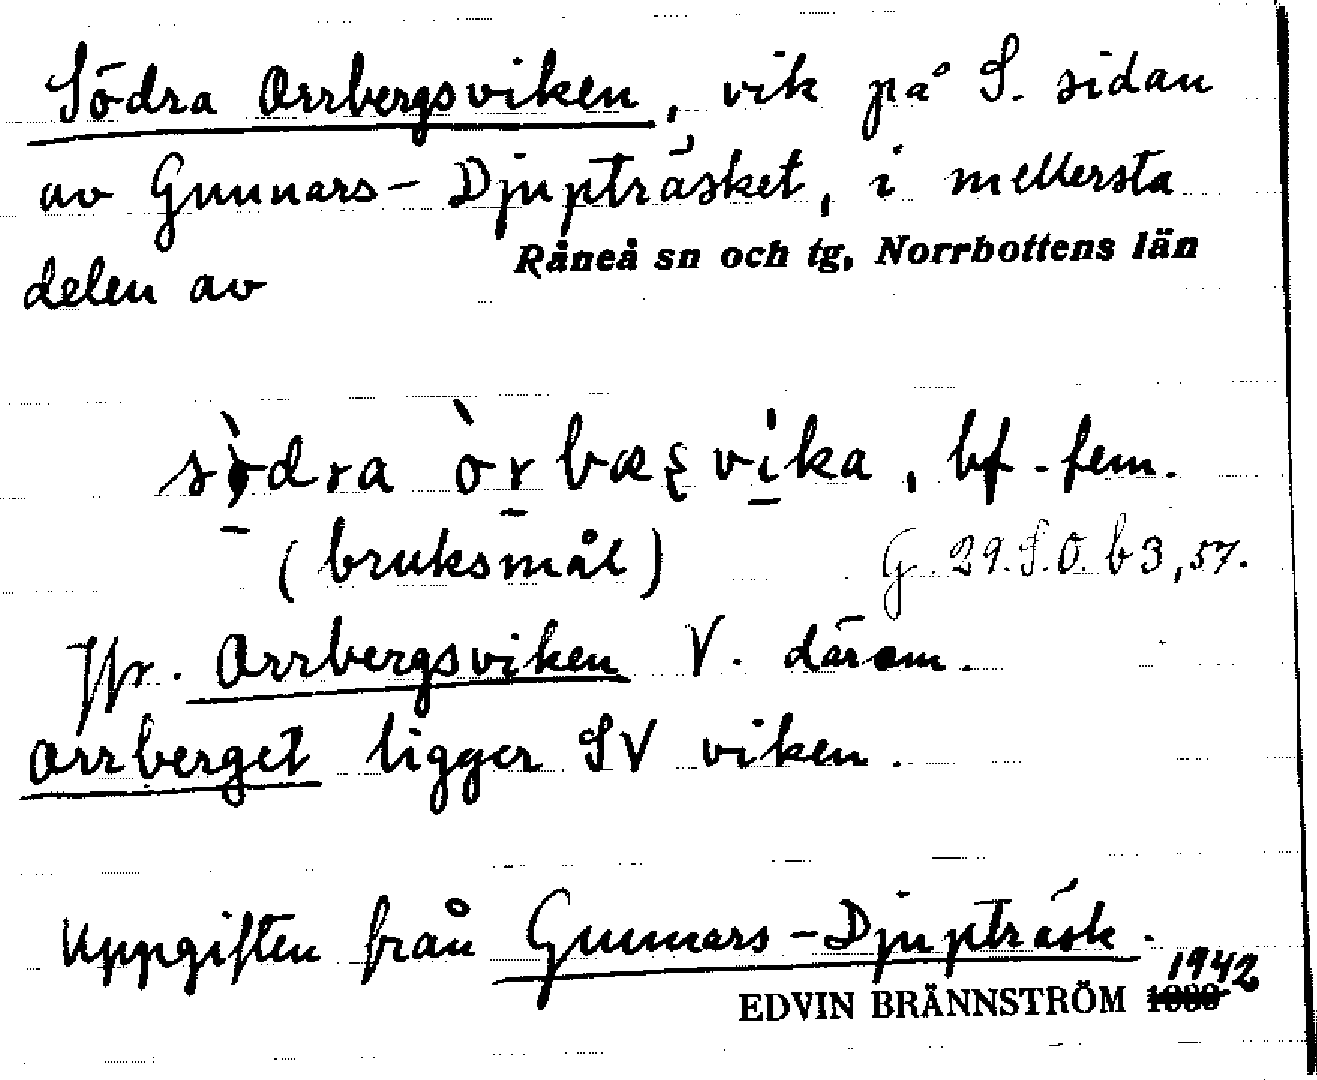 Södra Orrbergsviken, vik på S. sidan
av Gunnars-Djupträsket, i mellersta
delen av Råneå sn och tg, Norrbottens län
södra òrbæʂvika, bf. fem.
(bruksmål) G. 29. S.O. b3,57.
Jfr. Orrbergsviken V. därom.
Orrberget ligger SV viken.
Uppgiften från Gunnars-Djupträsk.
EDVIN BRÄNNSTRÖM 1942